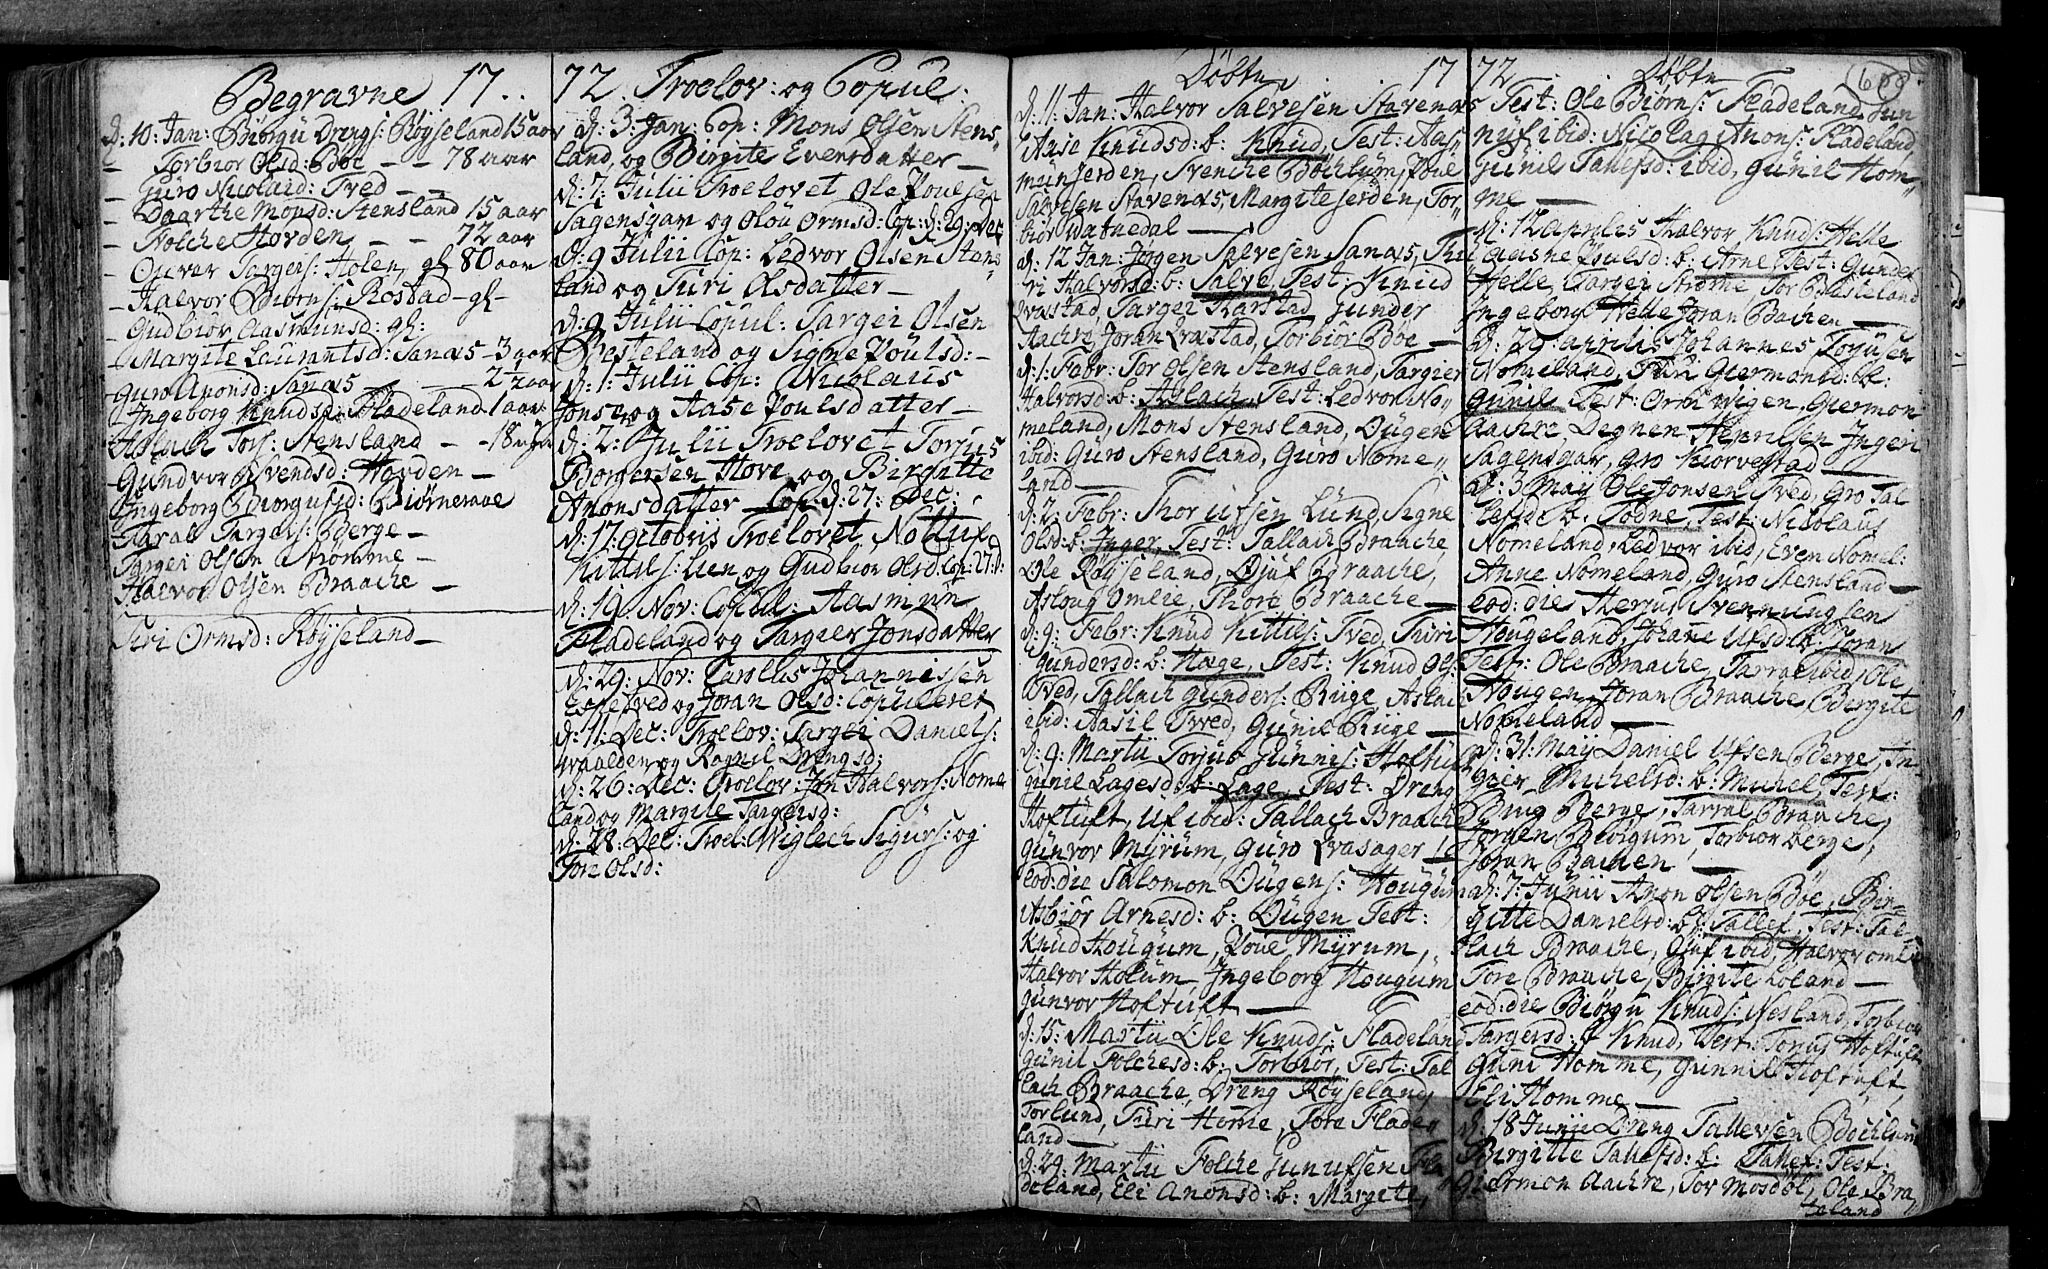 Begravne 17..
d: 10: Jan: Biørgu Drengs: Røyseland 15 aar
– Torbior Olsd: Bøe – – 78 aar
– Guro Nicolaid: Tved – –
– Daarthe Monsd: Stensland 15 aar
– Folche Hovden – – 72 aar
– Onvar Targers: Holen, gl 80 aar
– Halvor Biørns: Rostad – gl –
– Gudbiør Aasmunsd: gl:
– Margite Laurantsd: Sanæs – 3 aar
Guro Anonsd: Sanæs – 2 1/2 aar
Ingeborg Knudsd: Fladeland 1 aar
Aslach Tors: Stensland – – 18 uger
Gundvor Svendsd: Hovden –
Ingeborg Biorgufsd: Biørneraae
Taral Targers: Berge –
Targer Olsen Homme –
Halvor Olsen Braache –
Turi Ormsd: Røyseland –
72 Troelov: og Copul:
d: 3: Jan: Cop: Mons Olsen Stens„
land, og Birgite Evensdatter –
d: 7: Julii Troelovet Ole Poulsen
Sagensgaar og Olou Ormsd: Cop: d: 29: Dec
d: 9 Julii Cop: Ledvor Olsen Stens
land og Turi Olsdatter –
d: 9 Julii Copul: Targei Olsen
Besteland og Signe Poulsd: –
d: 1: Julii Cop: Nicolaus
Jonse og Aase Poulsdatter –
d: 2: Julii Troelovet Torjus
Borgersen Hove og Birgitte
Anonsdatter Cop: d: 27: Dec:
d: 17: Octobris Troelovet, Nottuf
Kittils: Lien og Gudbior Olsd: Cop: 27:
d: 19: Nov: Copul: Aasmun
Fladeland og Targier Jonsdatter
d: 29: Nov: Carollus Johannissen
Espetved og Joran Olsd: Copuleret
d: 11: Dec: Troelov: Targei Daniels:
Waalden og Ragnil Drengsd:
d: 26: Dec: Troelov: Jon Halvors: Nome
land og Margite Targersd:
d: 28: Dec: Troel: Niglech Sigurs: og
Tore Olsd:
Døbte 17
d: 11: Jan: Halvor Salvesen Stavenæs
Anse Knudsd: b: Knud, Test: Aas„
mun Jerden, Svenche Bøchlum, Poul
Salvesen Stavenæs, Margite Jerden, Tor„
bior Vatnedal –
d: 12 Jan: Jørgen Salvesen Sanæs, Thu
ri Halvorsd: b: Salve, Test: Knud
Qvastad, Targei Harstad Gunder
Aachre, Joran Qvastad, Torbiør Bøe –
d: 1: Fabr: Tor Olsen Stensland, Targier
Halvorsd: b: Aslach, Test: Ledvor No„
meland, Mons Stensland, Dugen
ibid: Guro Stensland, Guro Nome„
land –
d: 2: Febr: Thor Ufsen Lund, Signe
Olsd: b: Inger, Test: Tallach Braache
Ole Røyseland, Djuf Braache,
Asloug Omlie, Thore Braache –
d: 9: Febr: Knud Kittils: Tved, Thuri
Gundersd: b: Hæge, Test: Knud Ols:
Tved, Tallach Gunders: Riige Aslac
ibid: Aasil Tved, Gunil Riige –
d: 9: Martii Torjus Gunnis: Hoftuft
Gunil Lagesd: b: Lage, Test: Dreng
Hoftuft, Uf ibid: Tallach Braach
Gunvor Myrum, Guro Qvasager
eod: die Salomon Dugens: Hougum
Asbiør Arnesd: b: Dugen Test:
Knud Hougum, Poul Myrum,
Halvor Holum, Ingeborg Hougum
Gunvor Hoftuft –
d: 15: Martii Ole Knuds: Fladeland
Gunil Folchesd: b: Torbiør, Test: Tal
lach Braache, Dreng Røyseland,
Tor Lund, Turi Home, Tore Flade„
land –
d: 29: Martii Folche Gunufsen Fla
deland, Eli Anonsd: b: Margite,
72 Døbte 609
Test: Ole Biørns: Fladeland, Gun
nuf ibid: Nicolai Anons: Fladeland
Gunil Tallefsd: ibid, Gunil Hom„
me –
d: 12 Apriles Halvor Knuds: Helle
Aasne Poulsd: b: Arne, Test: Gunder
Helle, Targei Strome Tor Besteland
Ingeborg Helle Joran Bachen –
d: 20: Aprilis Johannes Torjusen
Nomeland, Giermonsd: b:
Gunil, Test: Orm Wigen, Giermon
Aachre, Degnen Henrissen Inger
Sagensgaar, Gro Kiorvestad –
d: 3 Maij Ole Jonsen Tved, Gro Tal
lefsd: b: Todne, Test: Nicolaus
Nomeland, Ledvor ibid, Even Nomel:
Anne Nomeland, Guro Stensland –
eod: die Herjus Svennungsen
Hougeland, Johane Ufsd: b: Joran
Test: Ole Braache, Tarral ibid, Ole
Hougen, Joran Braache, Bergite
Nomeland –
d: 31: Maij Daniel Ufsen Berge, In„
gær Michelsd: b: Michel, Test:
Berge, Tarral Braache,
Jørgen Biorgum, Torbior Berge,
Joran Bachen –
d: 7: Junii Anon Olsen Bøe, Bir„
gitte Danielsd: b: Tallef, Test: Tal„
lach Braache, Djuf ibid, Halvor Omlie
Tore Braache, Birgite Loland –
eod: die Biørgu Knuds: Nesland, Torbior
Targersd: b: Knud, Test: Torjus Hoftuft,
Guni Homme, Gunnil Hoftuft,
Eli Homme –
d: 18 Junii Dreng Tallevsen Bochlum
Birgitte Tallefsd: b: Tallef: Test:
Giermon Aachre, Tor Mosdøl, Ole Bra
eland